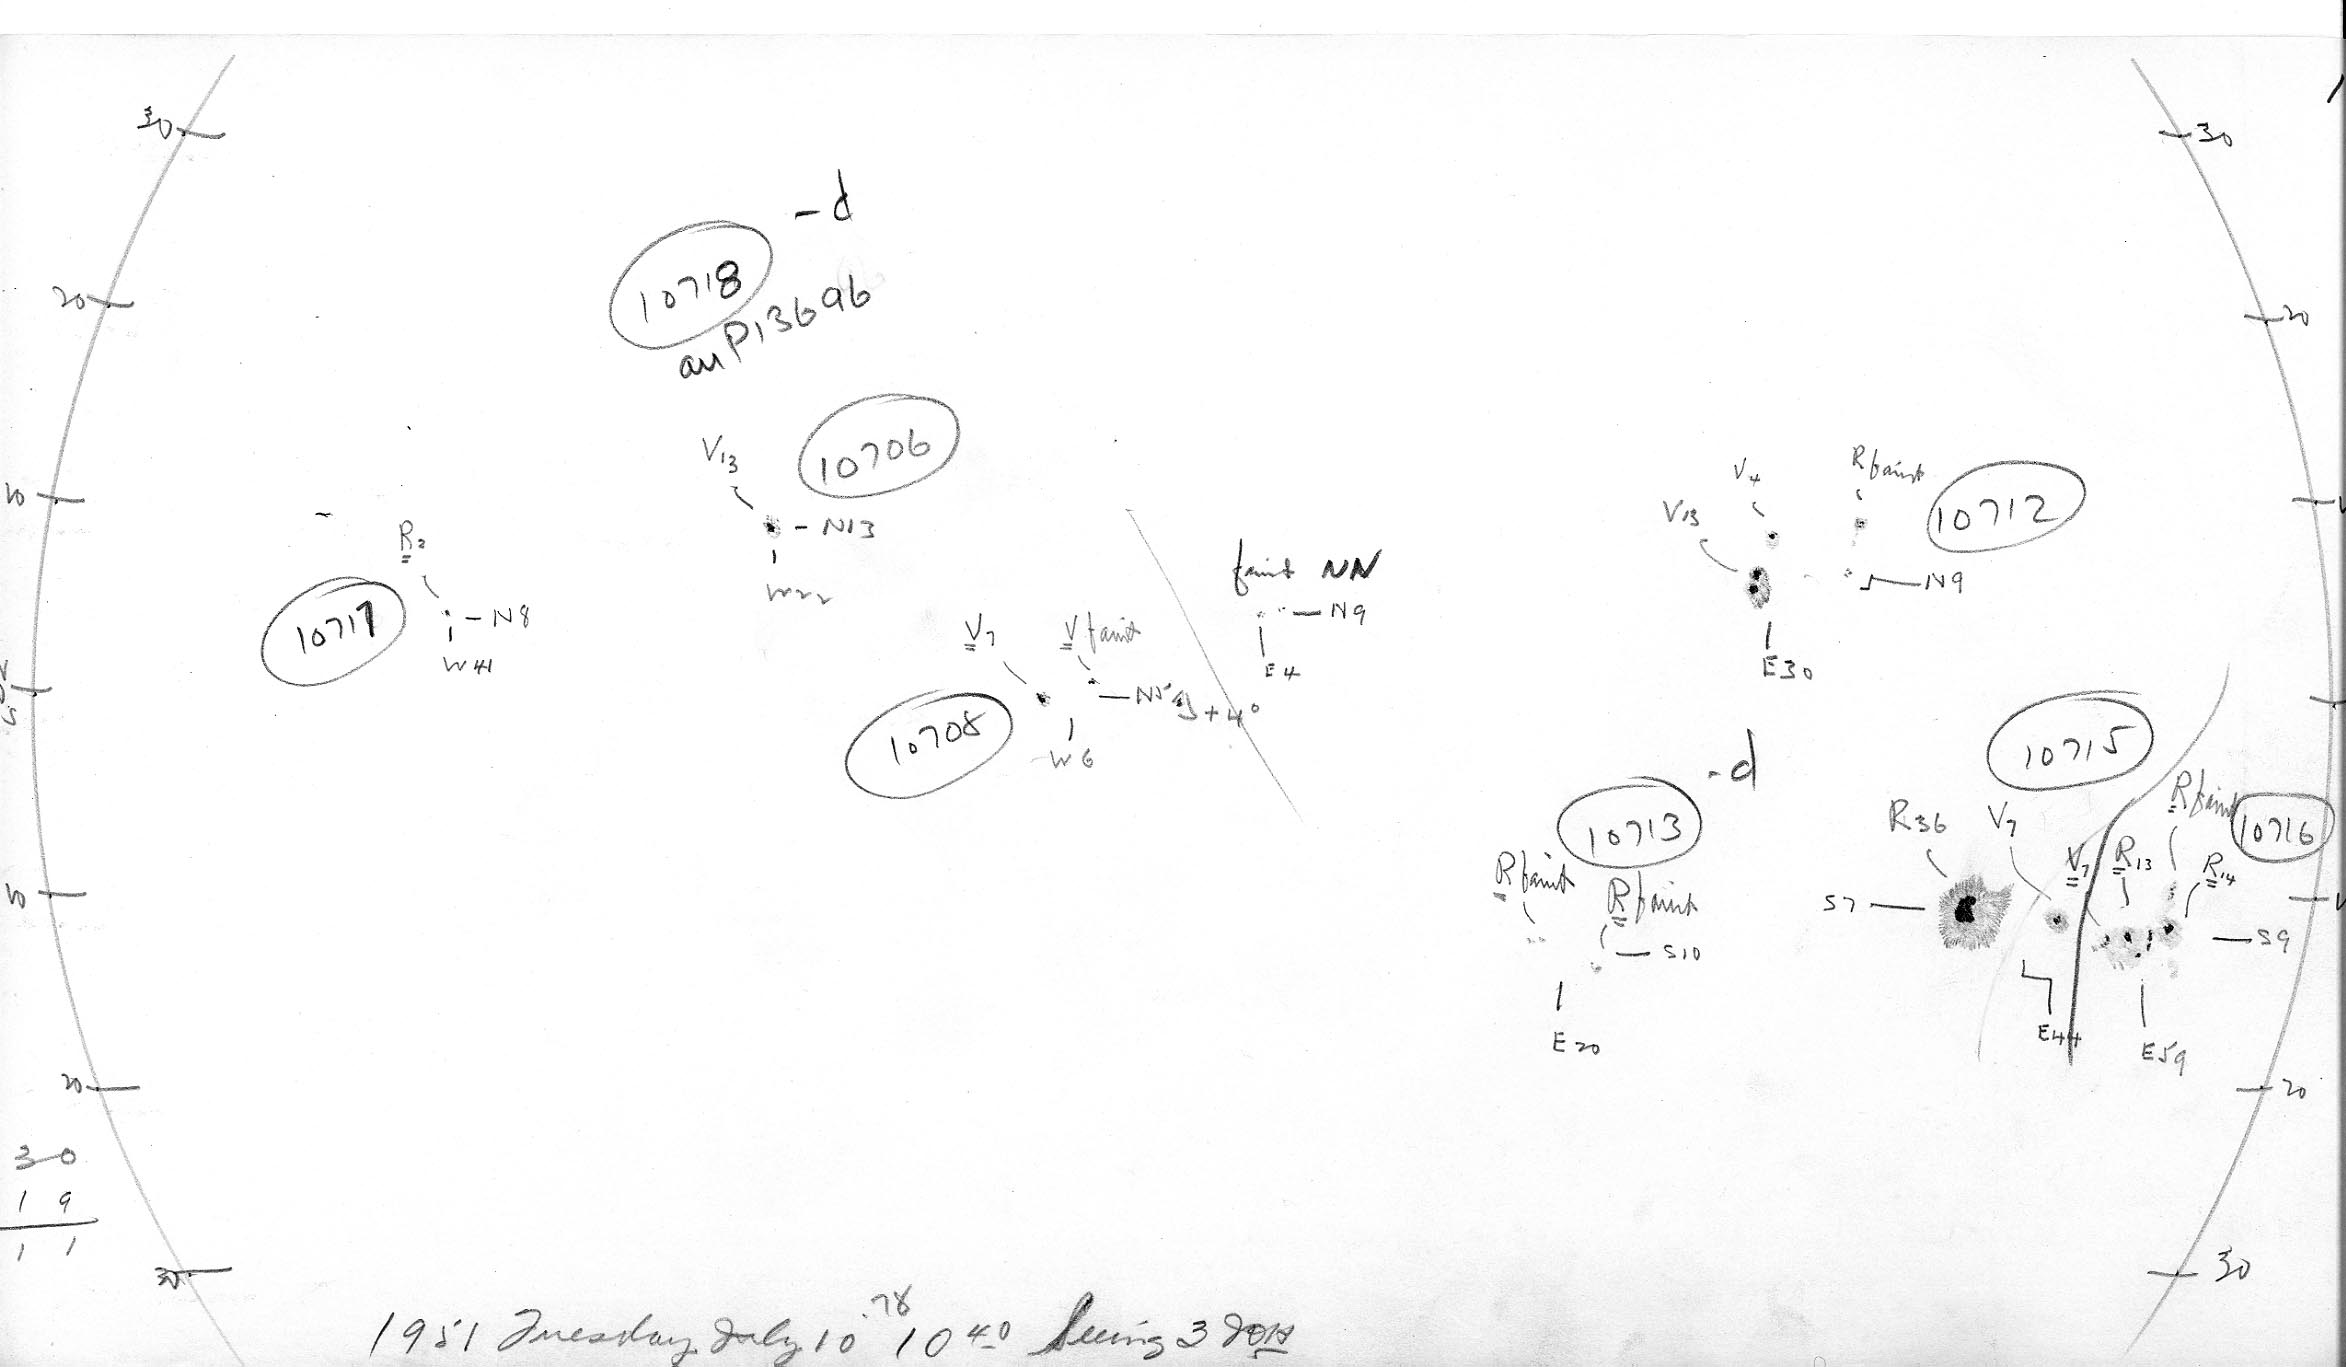 30
30
-d
20
10718
20
au P13696
10706
V13
V4
R faint
10712
10
V13
-N13
R2
faint NN
W22
-N9
10717
-N8
V7
V faint
-N9
W41
E4
E30
-N5
+4°
10708
W6
10715
-d
10713
R faint
10716
R36
V7
R faint
V7
R13
R14
R faint
10
S7
S9
S10
E20
E44
E59
20
20
30
19
11
30
30
1951 Tuesday July 10.78 10 40 Seeing 3